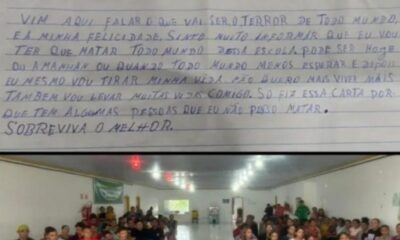 VIM AQUI FALAR O QUE VAI SER O TERROR DE TODO MUNDO,
E A MINHA FELICIDADE, SINTO MUITO INFORMAR QUE EU VOU
TER QUE MATAR TODO MUNDO DESSA ESCOLA, PODE SER HOJE
OU AMANHÃN OU QUANDO TODO MUNDO MENOS ESPERAR E DEPOIS
EU MESMO VOU TIRAR MINHA VIDA NÃO QUERO MAIS VIVER MAIS
TAMBEM VOU LEVAR MUITAS VIDAS COMIGO. SO FIZ ESSA CARTA POR
QUE TEM ALGUMAS PESSOAS QUE EU NÃO POSSO MATAR.
SOBREVIVA O MELHOR.